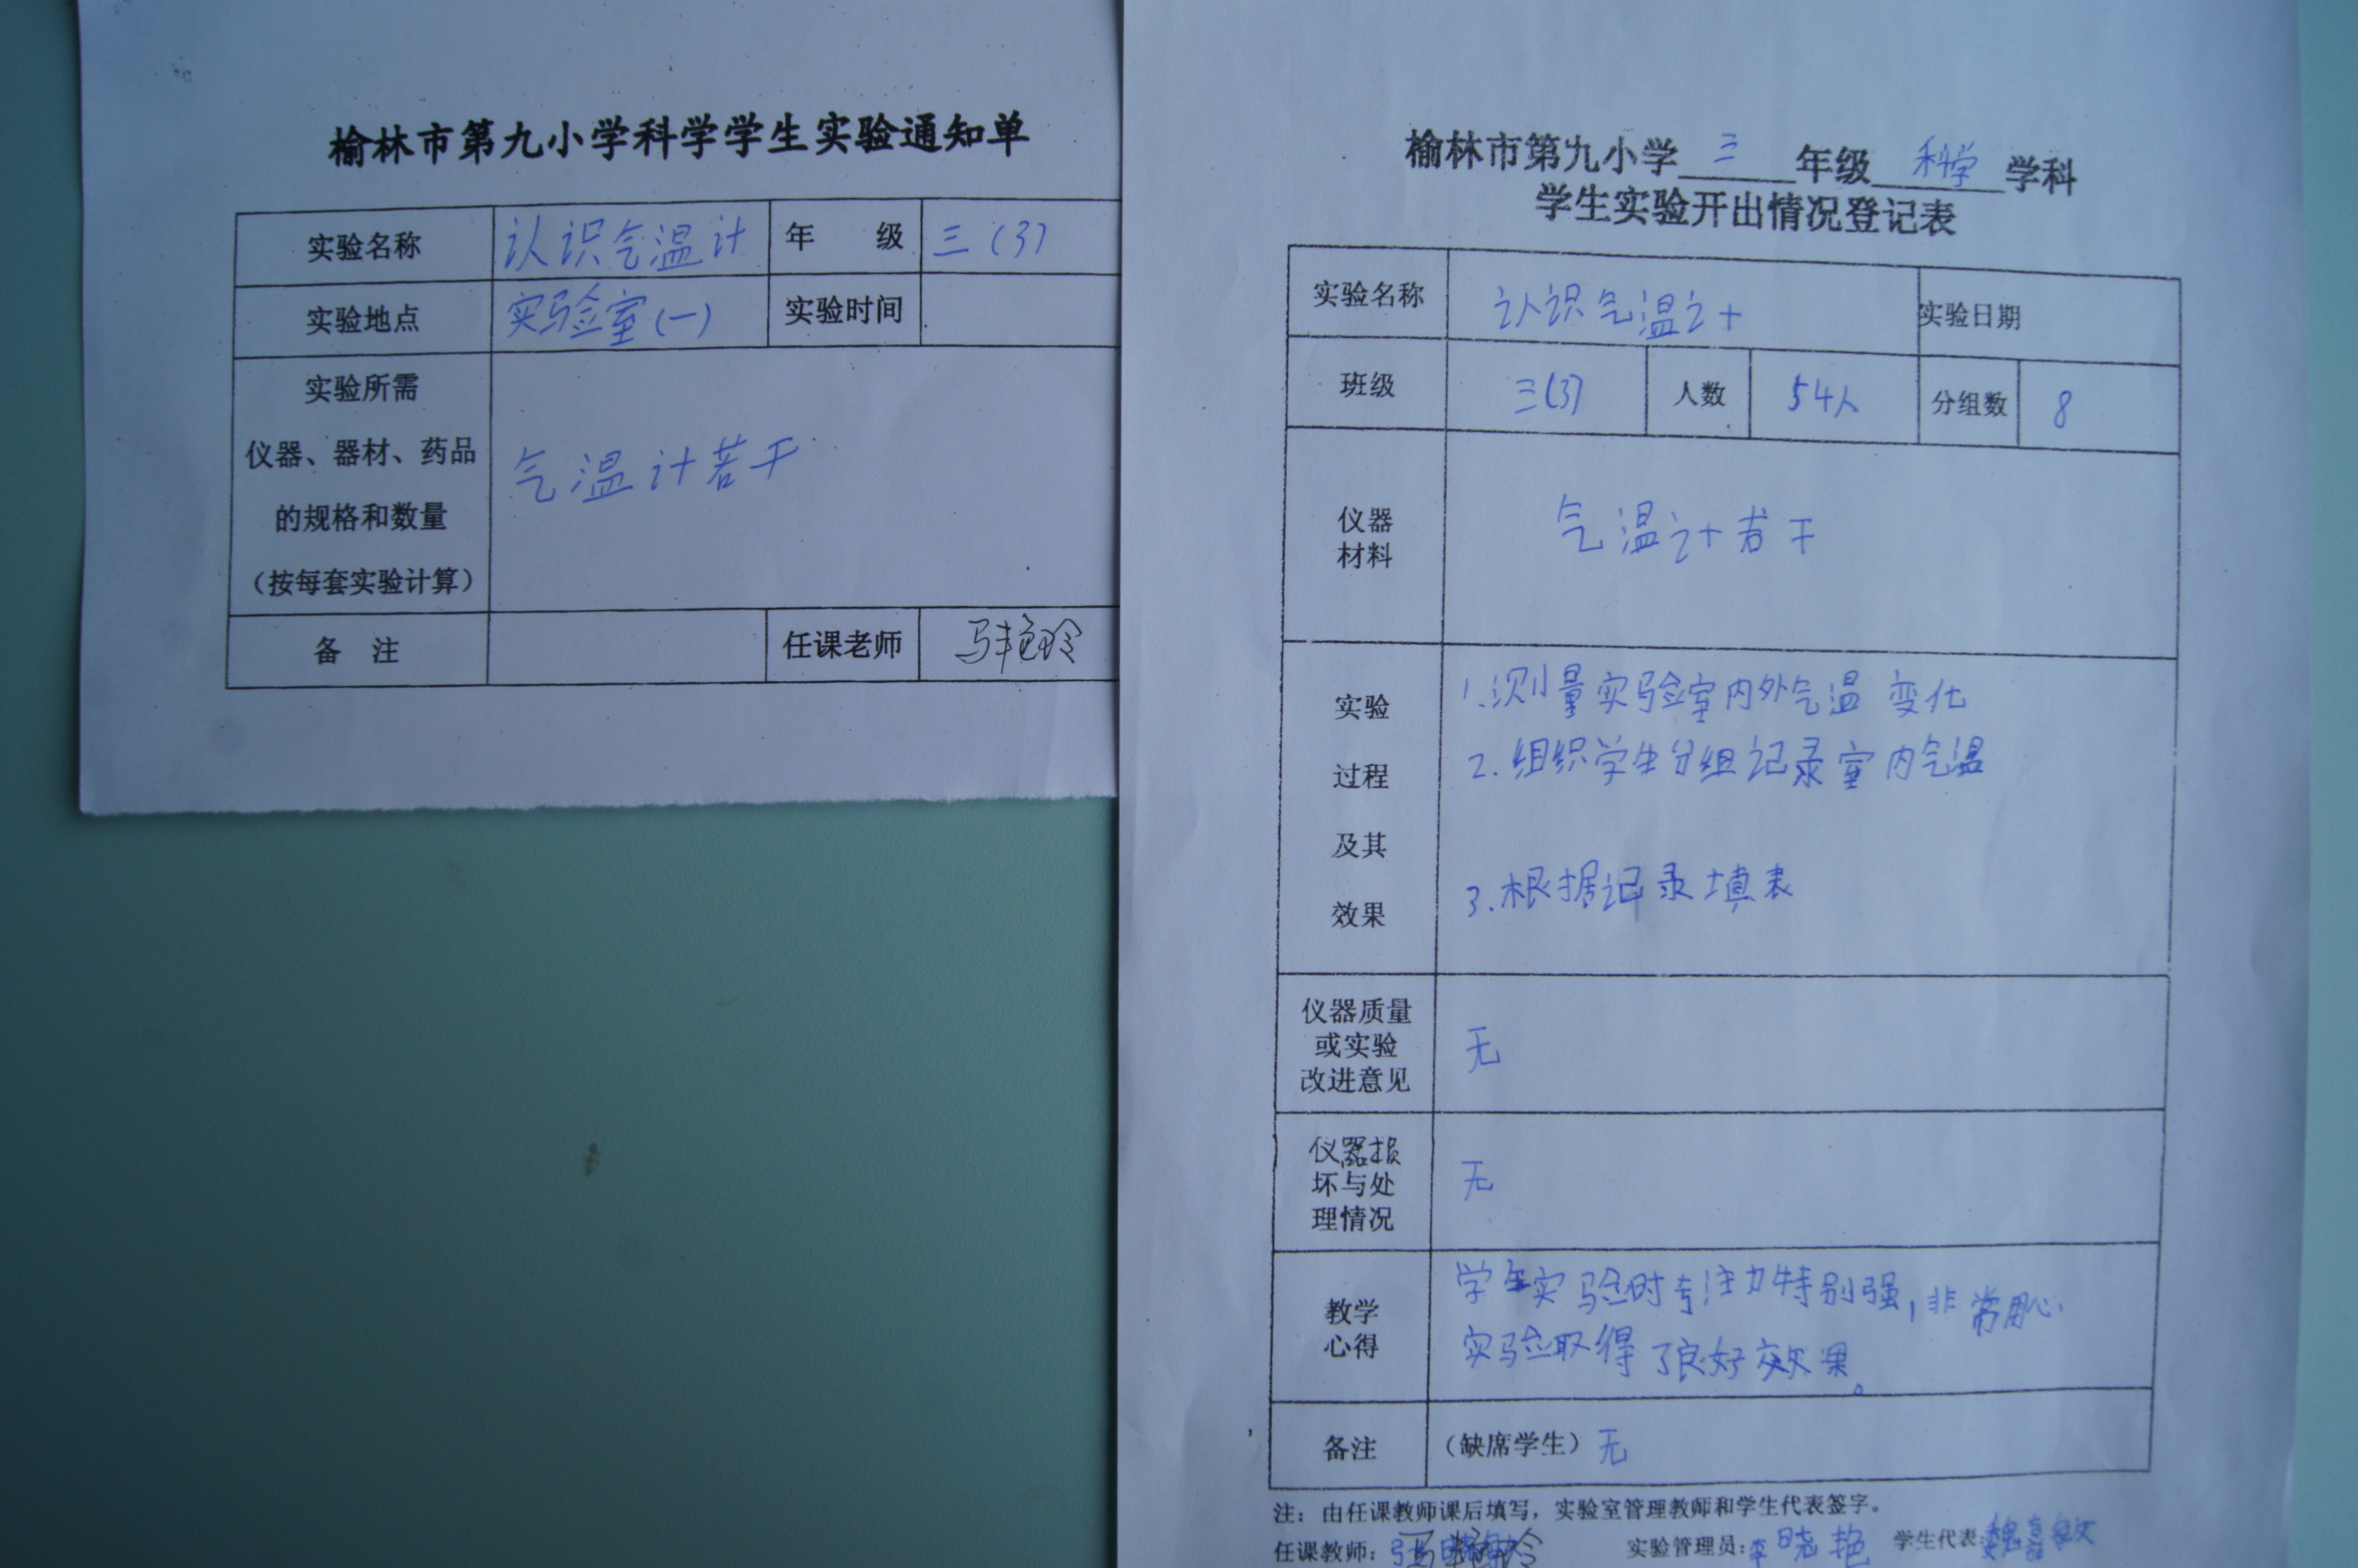 榆林市第九小学科学学生实验通知单
实验名称 认识气温计 年 级 三(3)
实验地点 实验室(一) 实验时间
实验所需
仪器、器材、药品
的规格和数量
(按每套实验计算)
气温计若干
备 注 任课老师 马艳玲
榆林市第九小学 三 年级 科学 学科
学生实验开出情况登记表
实验名称 认识气温计 实验日期
班级 三(3) 人数 54人 分组数 8
仪器
材料
气温计若干
实验
过程
及其
效果
1.测量实验室内外气温变化
2.组织学生分组记录室内气温
3.根据记录填表
仪器质量
或实验
改进意见
无
仪器损
坏与处
理情况
无
教学
心得
学生实验时专注力特别强,非常用心
实验取得了良好效果。
备注 (缺席学生) 无
注:由任课教师课后填写,实验室管理教师和学生代表签字。
任课教师: 实验管理员:李晓艳 学生代表: